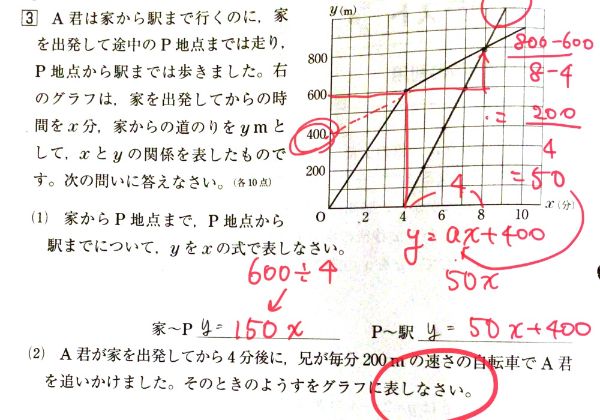 3 A君は家から駅まで行くのに，家
を出発して途中のP地点までは走り，
P地点から駅までは歩きました。右
のグラフは，家を出発してからの時
間をx分，家からの道のりをymと
して，xとyの関係を表したもので
す。次の問いに答えなさい。（各10点）
y(m)
800
600
400
200
O 2 4 6 8 10 x(分)
4
800-600
8-4
= 200
4
=50
y=ax+400
50x
(1) 家からP地点まで，P地点から
駅までについて，yをxの式で表しなさい。
600÷4
家〜P y= 150x P〜駅 y= 50x+400
(2) A君が家を出発してから4分後に，兄が毎分200mの速さの自転車でA君
を追いかけました。そのときのようすをグラフに表しなさい。